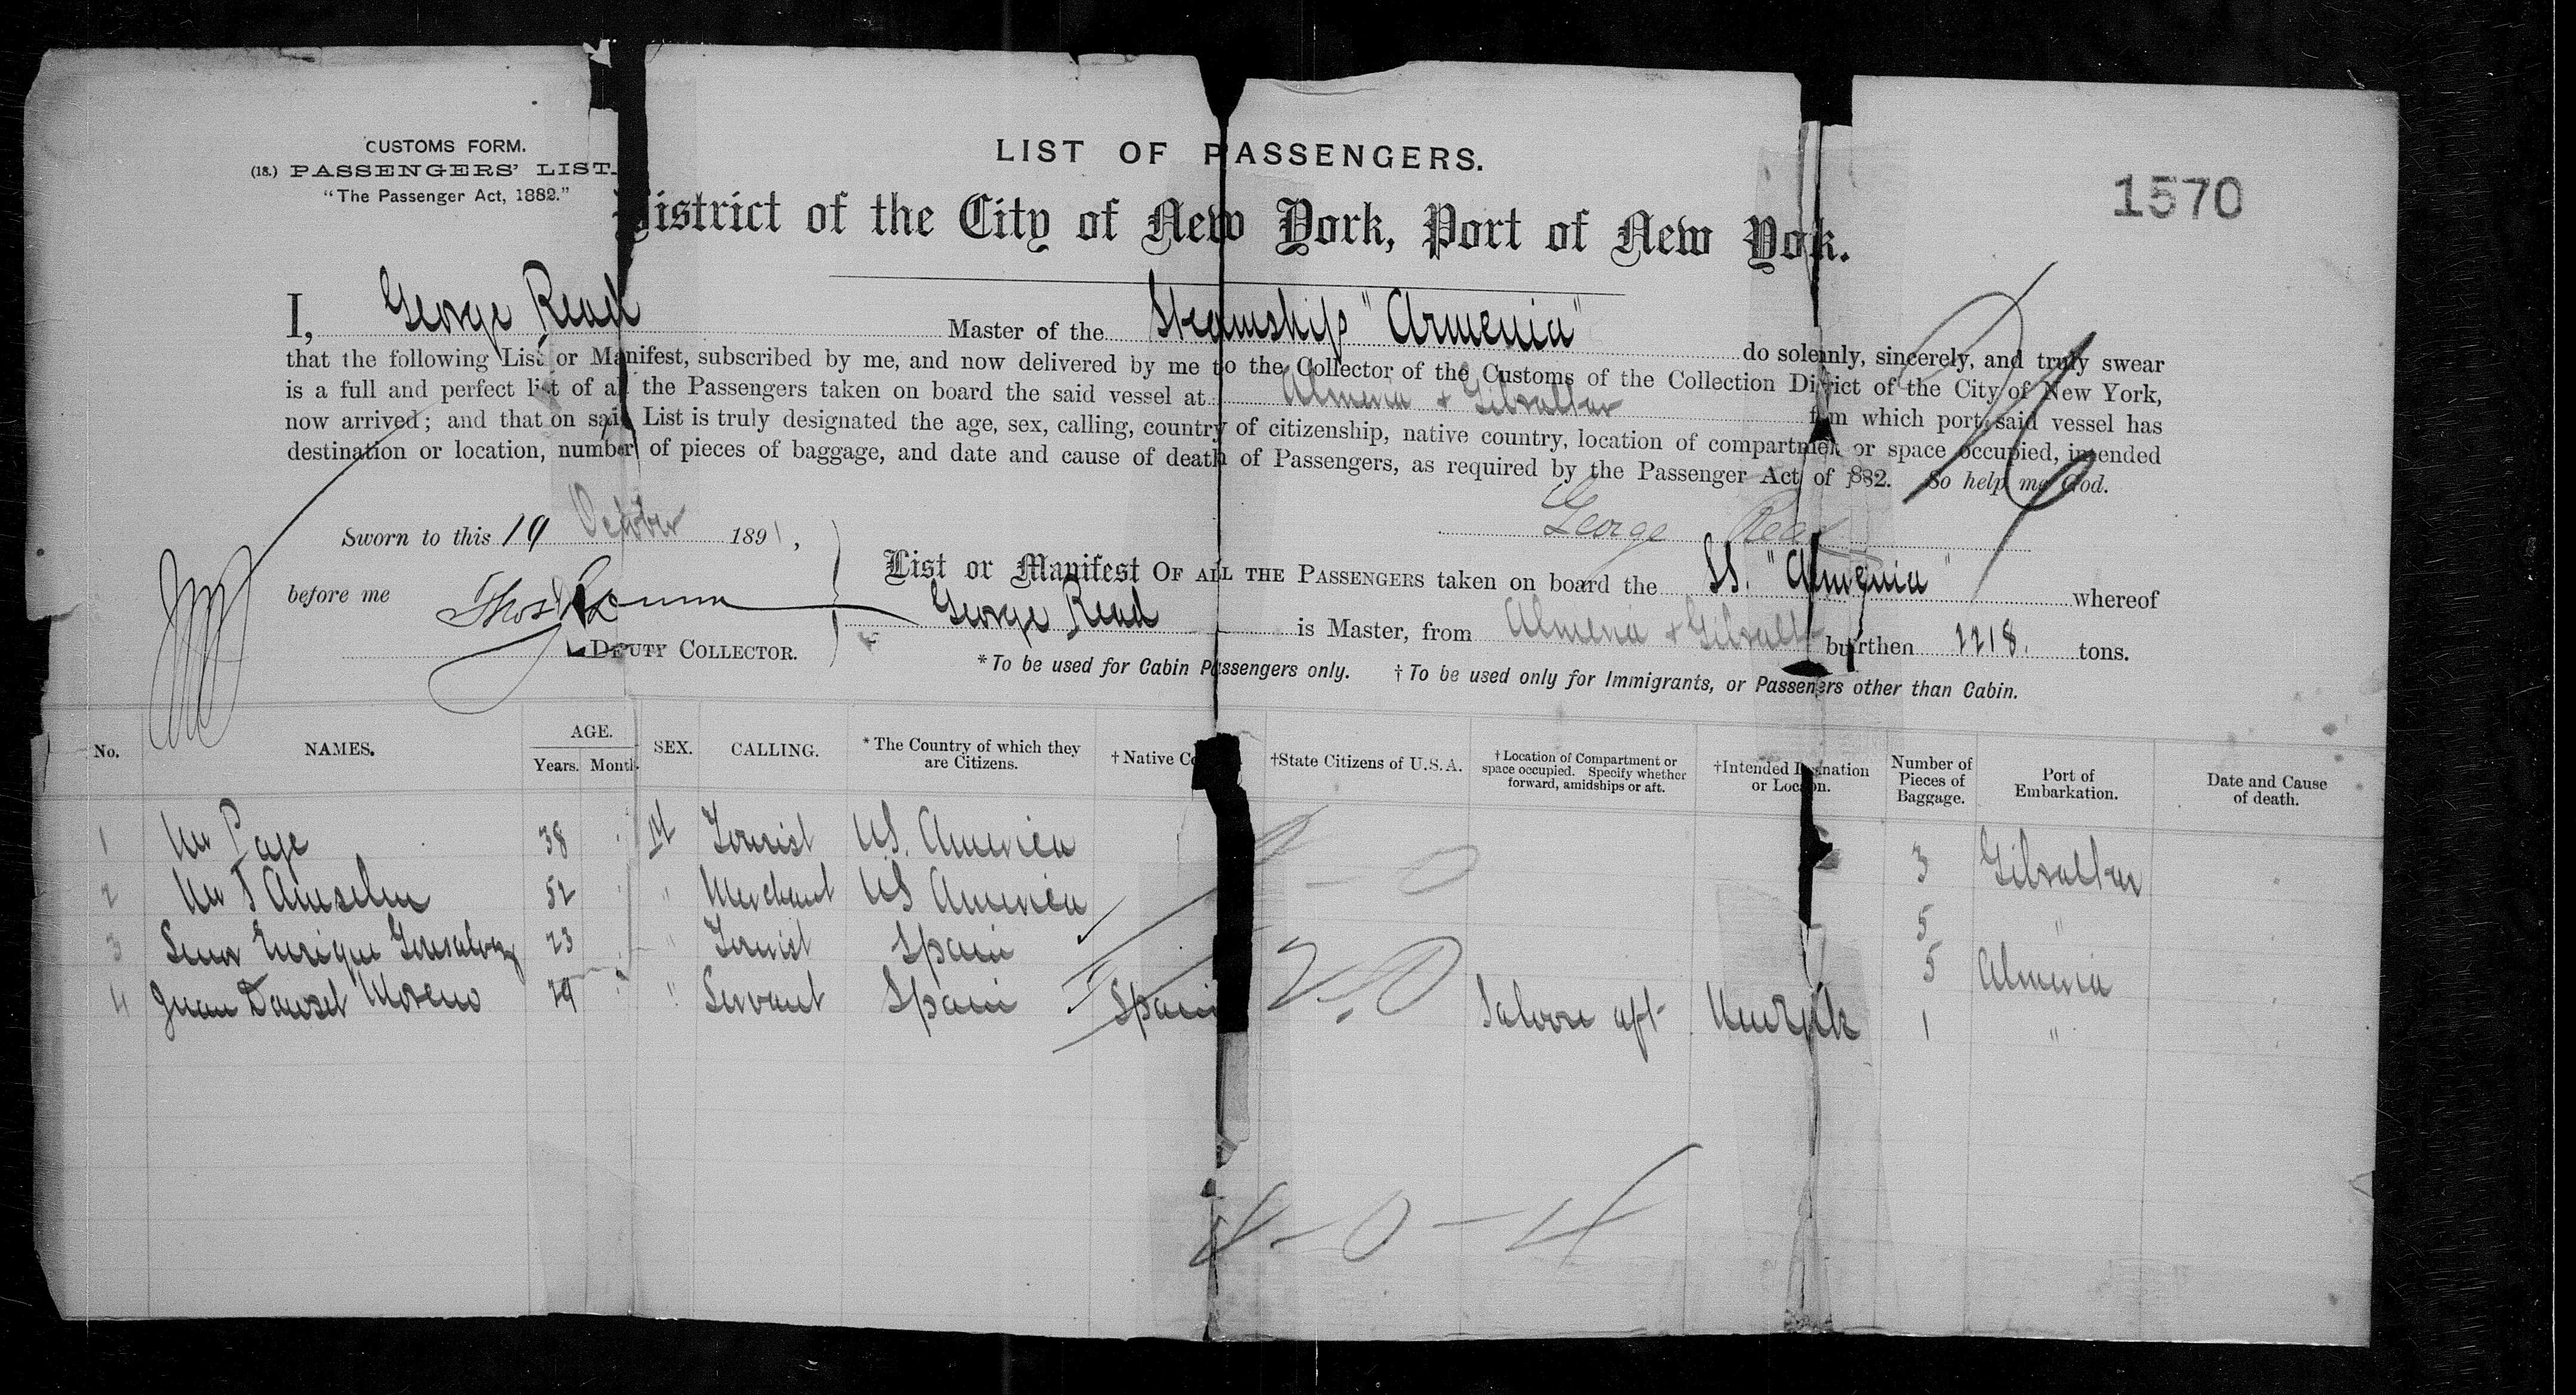 CUSTOMS FORM.
(18.) PASSENGERS' LIST.
"The Passenger Act, 1882."
LIST OF PASSENGERS.
District of the City of New York, Port of New York.
1570
I, George Read Master of the Steamship "Armenia" do solemnly, sincerely, and truly swear
that the following List or Manifest, subscribed by me, and now delivered by me to the Collector of the Customs of the Collection District of the City of New York,
is a full and perfect list of all the Passengers taken on board the said vessel at Almeria + Gibraltar from which port said vessel has
now arrived; and that on said List is truly designated the age, sex, calling, country of citizenship, native country, location of compartment or space occupied, intended
destination or location, number of pieces of baggage, and date and cause of death of Passengers, as required by the Passenger Act of 1882. So help me God.
Sworn to this 19 October 1891,
George Read
before me Thos
DEPUTY COLLECTOR.
List or Manifest OF ALL THE PASSENGERS taken on board the SS. "Armenia" whereof
George Read is Master, from Almeria + Gibraltar burthen 2218. tons.
*To be used for Cabin Passengers only. †To be used only for Immigrants, or Passengers other than Cabin.
No. NAMES. AGE. Years. Month. SEX. CALLING. *The Country of which they are Citizens. †Native Co †State Citizens of U.S.A. †Location of Compartment or space occupied. Specify whether forward, amidships or aft. †Intended Destination or Location. Number of Pieces of Baggage. Port of Embarkation. Date and Cause of death.
1 Mr Page 38 M Tourist US. America 3 Gibraltar
2 Mr 52 " Merchant US America 5 "
3 Senor Enrique 23 " Tourist Spain 5 Almeria
4 Juan Moreno 29 " Servant Spain Spain Saloon aft New York 1 "
2-0
4-0-4